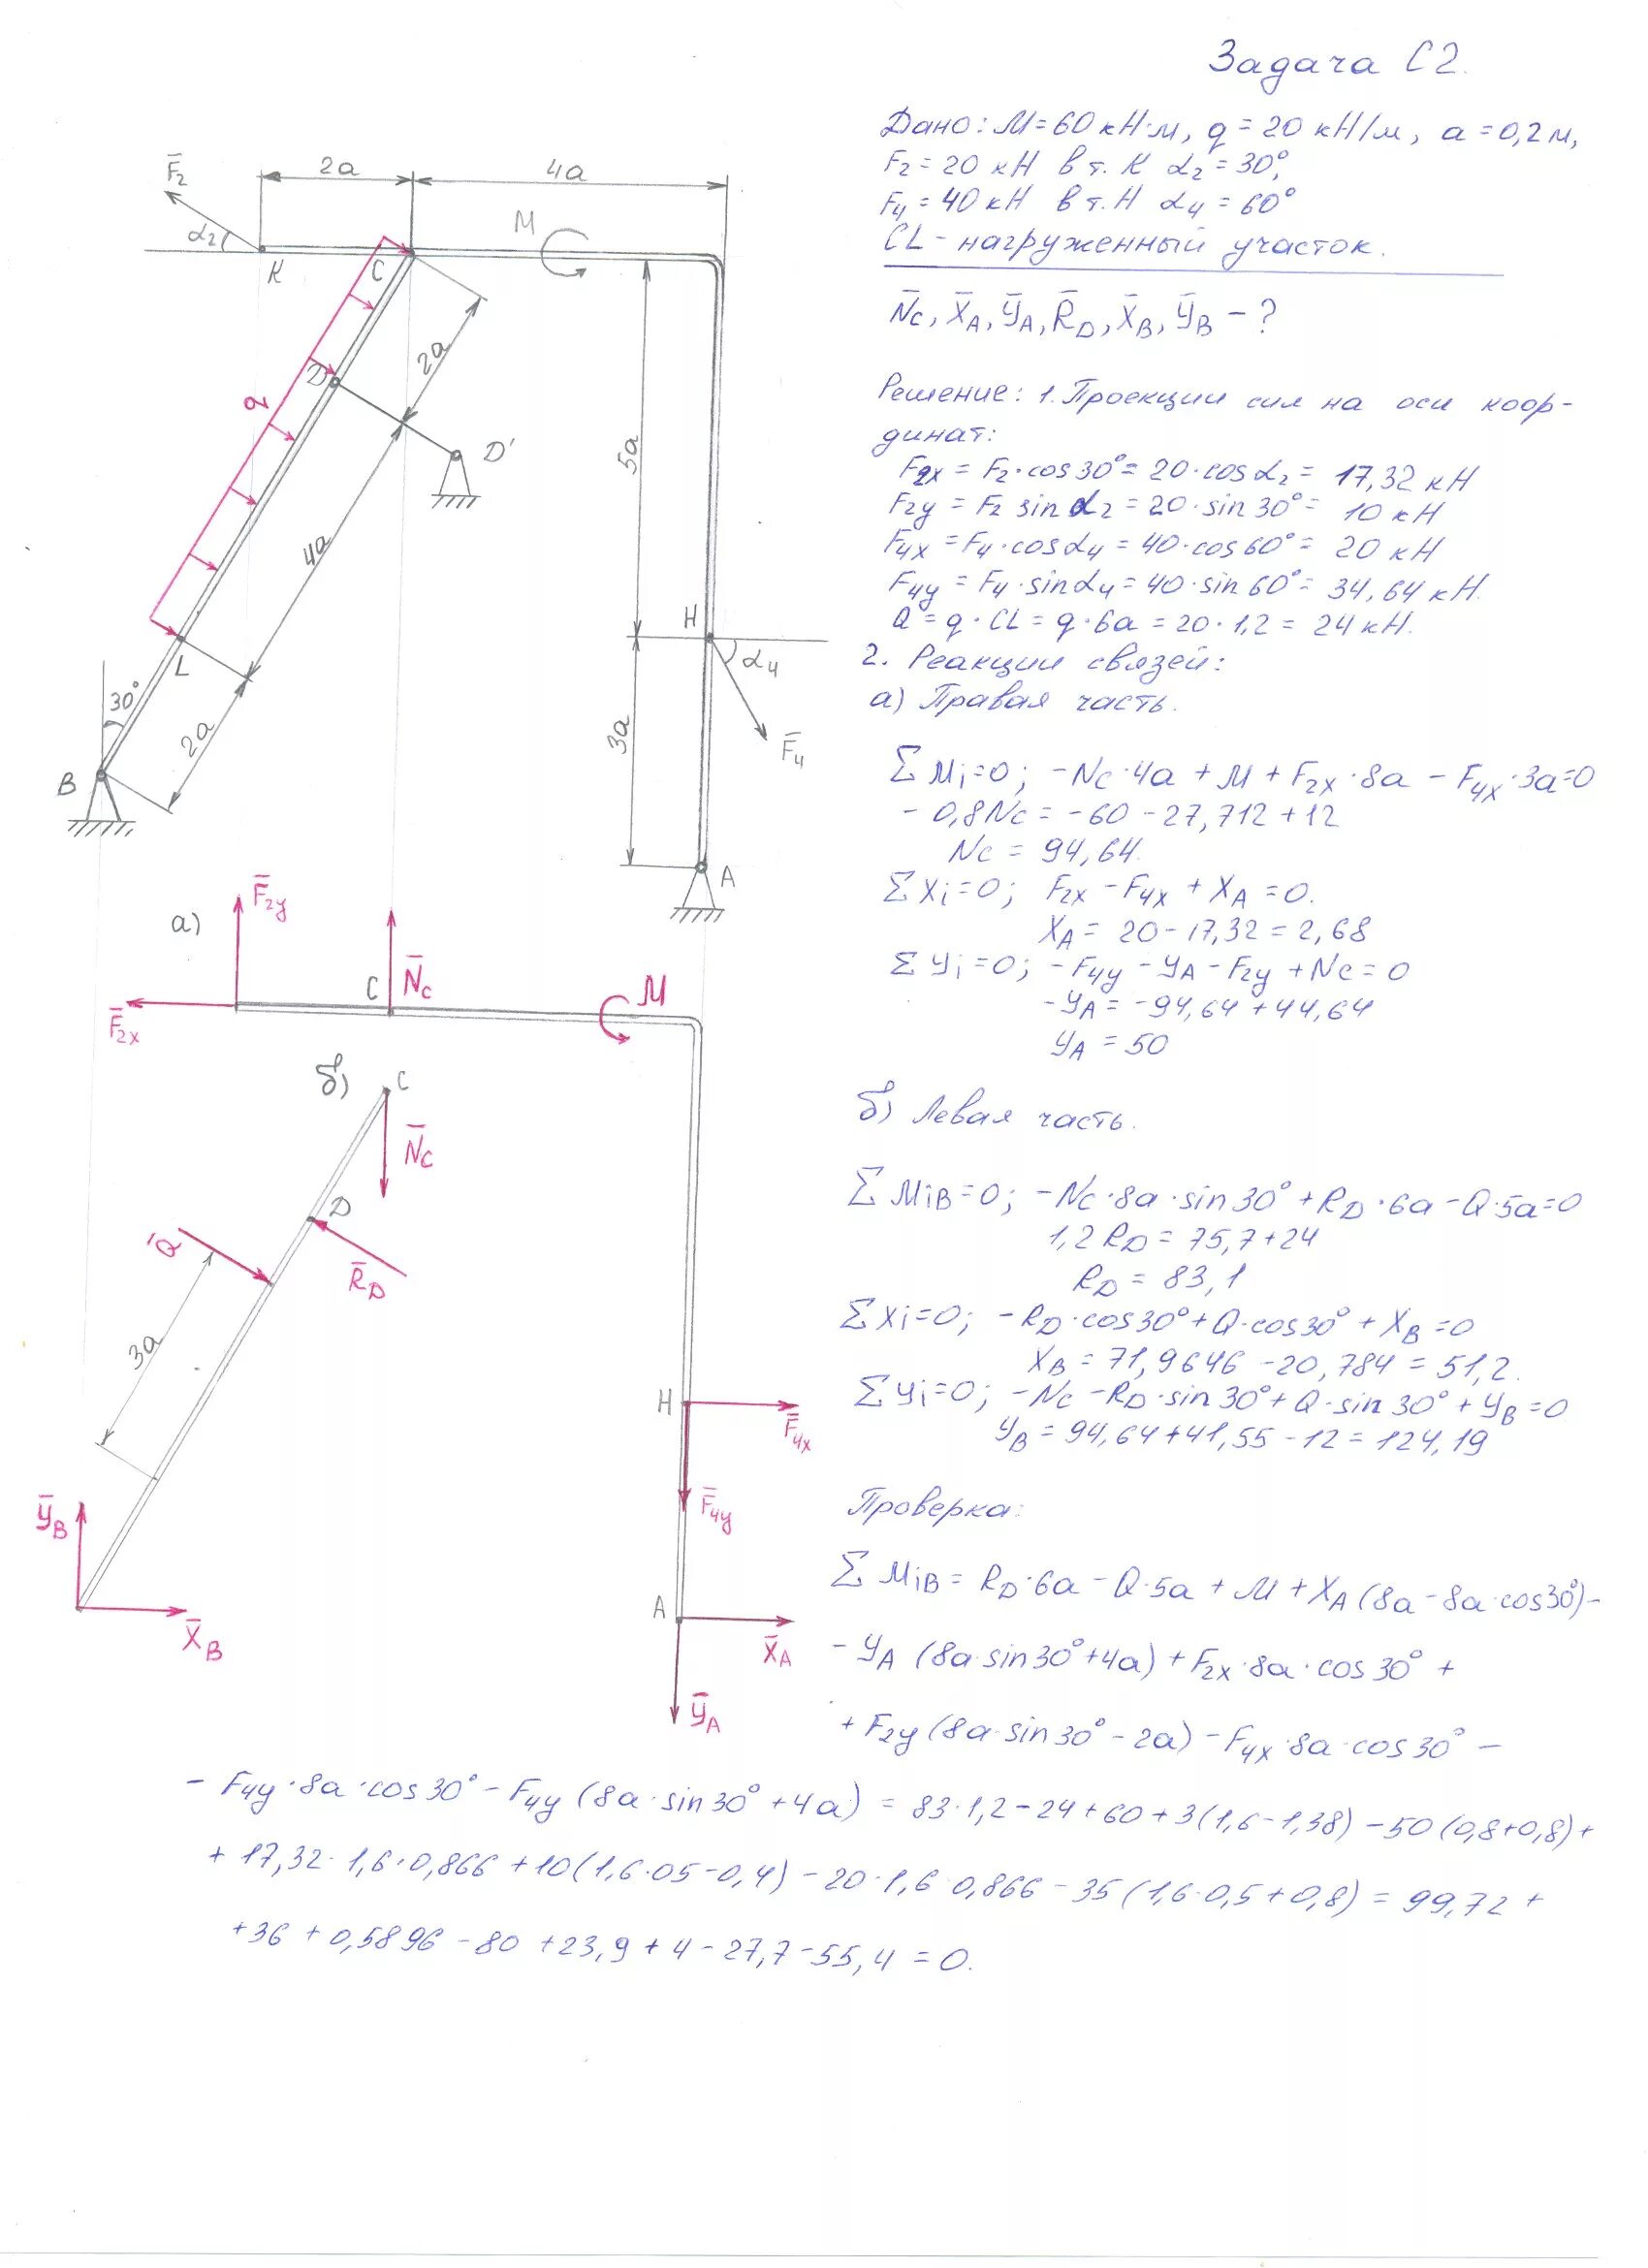 Задача С2.
Дано: M=60 кН·м, q=20 кН/м, a=0,2м,
F₂=20 кН в т. К α₂=30°,
F₄=40 кН в т.Н α₄=60°
CL-нагруженный участок.
N̄c, X̄A, ȲA, R̄D, X̄B, ȲB - ?
Решение: 1. Проекции сил на оси коор-
динат:
F₂x = F₂·cos30°= 20·cosα₂ = 17,32 кН
F₂y = F₂ sinα₂ = 20·sin30°= 10 кН
F₄x = F₄·cosα₄ = 40·cos60°= 20 кН
F₄y = F₄·sinα₄= 40·sin60°= 34,64 кН.
Q = q·CL = q·6a = 20·1,2 = 24 кН.
2. Реакции связей:
а) Правая часть.
ΣMi=0; -Nc·4a + M + F₂x·8a - F₄x·3a=0
- 0,8Nc = -60 - 27,712 + 12
Nc = 94,64.
ΣXi=0; F₂x - F₄x + XA = 0.
XA = 20 - 17,32 = 2,68
ΣYi=0; -F₄y - YA - F₂y + Nc = 0
-YA = -94,64 + 44,64
YA = 50
б) Левая часть.
ΣMiB=0; -Nc·8a·sin30° + RD·6a - Q·5a=0
1,2 RD = 75,7+24
RD = 83,1
ΣXi=0; -RD·cos30°+Q·cos30° + XB =0
XB = 71,9646 - 20,784 = 51,2.
ΣYi=0; -Nc -RD·sin30°+ Q·sin30° + YB =0
YB = 94,64+41,55 - 12 = 124,19
Проверка:
ΣMiB = RD·6a - Q·5a + M + XA (8a - 8a·cos30°)-
- YA (8a·sin30°+4a) + F₂x·8a·cos30° +
+ F₂y (8a·sin30° - 2a) - F₄x·8a·cos30° -
- F₄y·8a·cos30° - F₄y (8a·sin30° + 4a) = 83·1,2 - 24 + 60 + 3(1,6 - 1,38) - 50(0,8+0,8)+
+ 17,32·1,6·0,866 + 10(1,6·05 - 0,4) - 20·1,6·0,866 - 35(1,6·0,5+0,8) = 99,72 +
+36 + 0,5896 - 80 + 23,9 + 4 - 27,7 - 55,4 = 0.
F̄₂
2a
4a
α₂
M
K
C
2a
D
q
D'
5a
4a
H
α₄
L
30°
F̄₄
3a
2a
B
A
а)
F̄₂y
C
N̄c
M
F̄₂x
б)
C
N̄c
D
Q̄
R̄D
3a
H
F̄₄x
F̄₄y
ȲB
X̄B
A
X̄A
ȲA